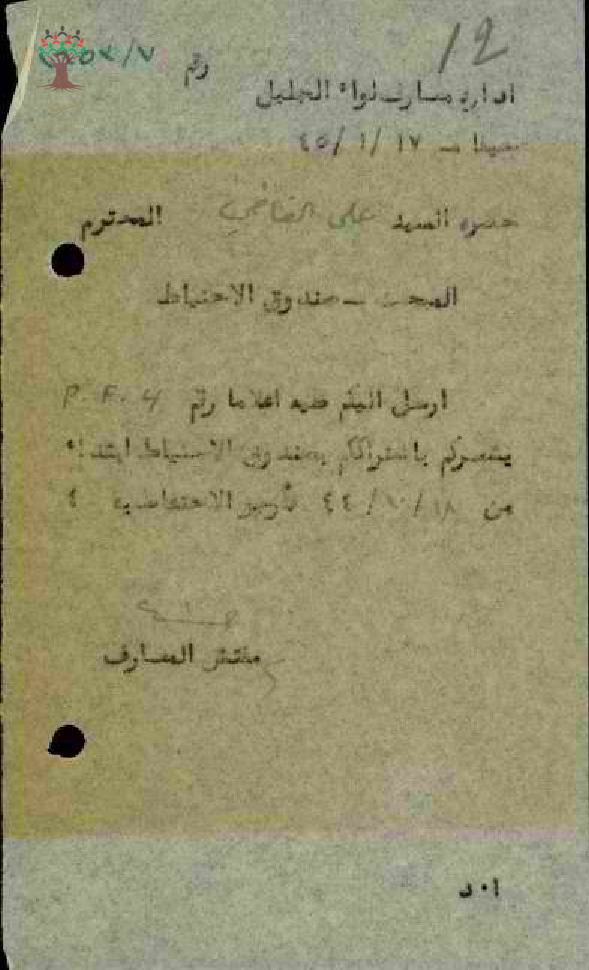 ١٢
رقم ٧/
ادارة معارف لواء الجليل
صفد ــ ١٧ /١ /٤٥
حضرة السيد علي القاضي المحترم
المبحث ــ صندوق الاحتياط
ارسل اليكم طيه اعلاما رقم P. F. 4
يشعركم باشتراككم بصندوق الاحتياط ابتداء
من ١٨ /١٠ /٤٤ لأرجو الاحتفاظ به ؛
مفتش المعارف
ا٠د